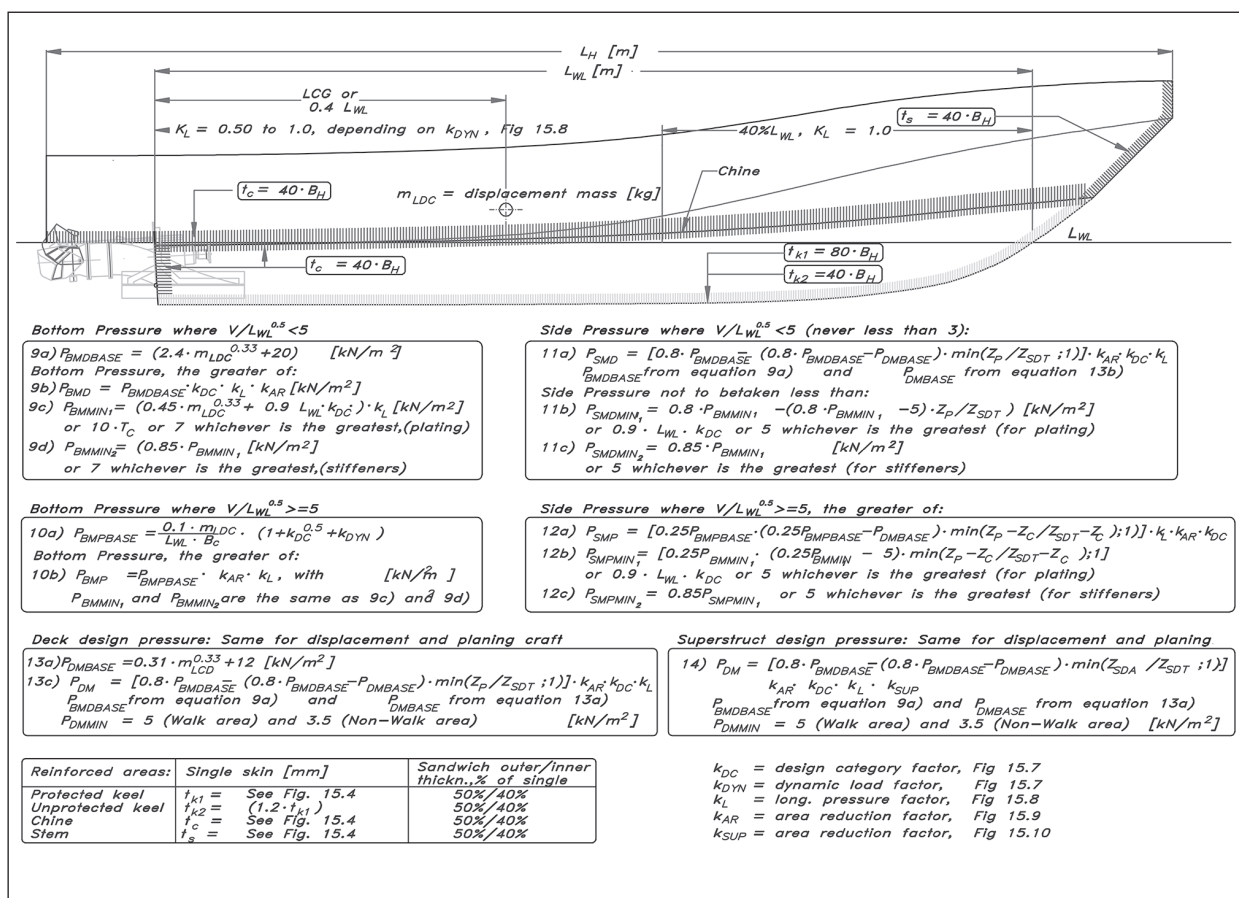 L_H [m]
L_WL [m]
LCG or
0.4 L_WL
K_L = 0.50 to 1.0, depending on k_DYN , Fig 15.8
40%L_WL, K_L = 1.0
t_s = 40·B_H
Chine
t_c = 40·B_H
m_LDC = displacement mass [kg]
L_WL
t_c = 40·B_H
t_k1 = 80·B_H
t_k2 = 40·B_H
Bottom Pressure where V/L_WL^0.5 <5
9a) P_BMDBASE = (2.4·m_LDC^0.33+20) [kN/m^2]
Bottom Pressure, the greater of:
9b) P_BMD = P_BMDBASE·k_DC·k_L·k_AR [kN/m^2]
9c) P_BMMIN1 = (0.45·m_LDC^0.33 + 0.9 L_WL·k_DC)·k_L [kN/m^2]
or 10·T_C or 7 whichever is the greatest,(plating)
9d) P_BMMIN2 = (0.85·P_BMMIN1 [kN/m^2]
or 7 whichever is the greatest,(stiffeners)
Side Pressure where V/L_WL^0.5 <5 (never less than 3):
11a) P_SMD = [0.8·P_BMDBASE– (0.8·P_BMDBASE–P_DMBASE)·min(Z_P/Z_SDT ;1)]·k_AR·k_DC·k_L
P_BMDBASE from equation 9a) and P_DMBASE from equation 13b)
Side Pressure not to betaken less than:
11b) P_SMDMIN1 = 0.8·P_BMMIN1 –(0.8·P_BMMIN1 –5)·Z_P/Z_SDT ) [kN/m^2]
or 0.9·L_WL·k_DC or 5 whichever is the greatest (for plating)
11c) P_SMDMIN2 = 0.85·P_BMMIN1 [kN/m^2]
or 5 whichever is the greatest (for stiffeners)
Bottom Pressure where V/L_WL^0.5 >=5
10a) P_BMPBASE = 0.1·m_LDC / L_WL·B_C · (1+k_DC^0.5+k_DYN )
Bottom Pressure, the greater of:
10b) P_BMP =P_BMPBASE· k_AR·k_L, with [kN/m^2 ]
P_BMMIN1 and P_BMMIN2 are the same as 9c) and 9d)
Side Pressure where V/L_WL^0.5 >=5, the greater of:
12a) P_SMP = [0.25P_BMPBASE·(0.25P_BMPBASE–P_DMBASE)·min(Z_P–Z_C/Z_SDT–Z_C );1)]·k_L·k_AR·k_DC
12b) P_SMPMIN1 = [0.25P_BMMIN1·(0.25P_BMMIN1 – 5)·min(Z_P–Z_C/Z_SDT–Z_C );1]
or 0.9·L_WL·k_DC or 5 whichever is the greatest (for plating)
12c) P_SMPMIN2 = 0.85P_SMPMIN1 or 5 whichever is the greatest (for stiffeners)
Deck design pressure: Same for displacement and planing craft
13a)P_DMBASE =0.31·m_LCD^0.33+12 [kN/m^2]
13c) P_DM = [0.8·P_BMDBASE– (0.8·P_BMDBASE–P_DMBASE)·min(Z_P/Z_SDT ;1)]·k_AR·k_DC·k_L
P_BMDBASE from equation 9a) and P_DMBASE from equation 13a)
P_DMMIN = 5 (Walk area) and 3.5 (Non–Walk area) [kN/m^2]
Superstruct design pressure: Same for displacement and planing
14) P_DM = [0.8·P_BMDBASE–(0.8·P_BMDBASE–P_DMBASE)·min(Z_SDA /Z_SDT ;1)]
k_AR· k_DC· k_L · k_SUP
P_BMDBASE from equation 9a) and P_DMBASE from equation 13a)
P_DMMIN = 5 (Walk area) and 3.5 (Non–Walk area) [kN/m^2]
Reinforced areas: Single skin [mm] Sandwich outer/inner
thickn.,% of single
Protected keel t_k1 = See Fig. 15.4 50%/40%
Unprotected keel t_k2 = (1.2·t_k1) 50%/40%
Chine t_c = See Fig. 15.4 50%/40%
Stem t_s = See Fig. 15.4 50%/40%
k_DC = design category factor, Fig 15.7
k_DYN = dynamic load factor, Fig 15.7
k_L = long. pressure factor, Fig 15.8
k_AR = area reduction factor, Fig 15.9
k_SUP = area reduction factor, Fig 15.10